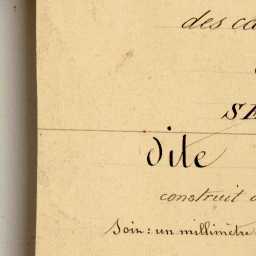 des ca
SE
dite
construit d
Soit : un millimètre